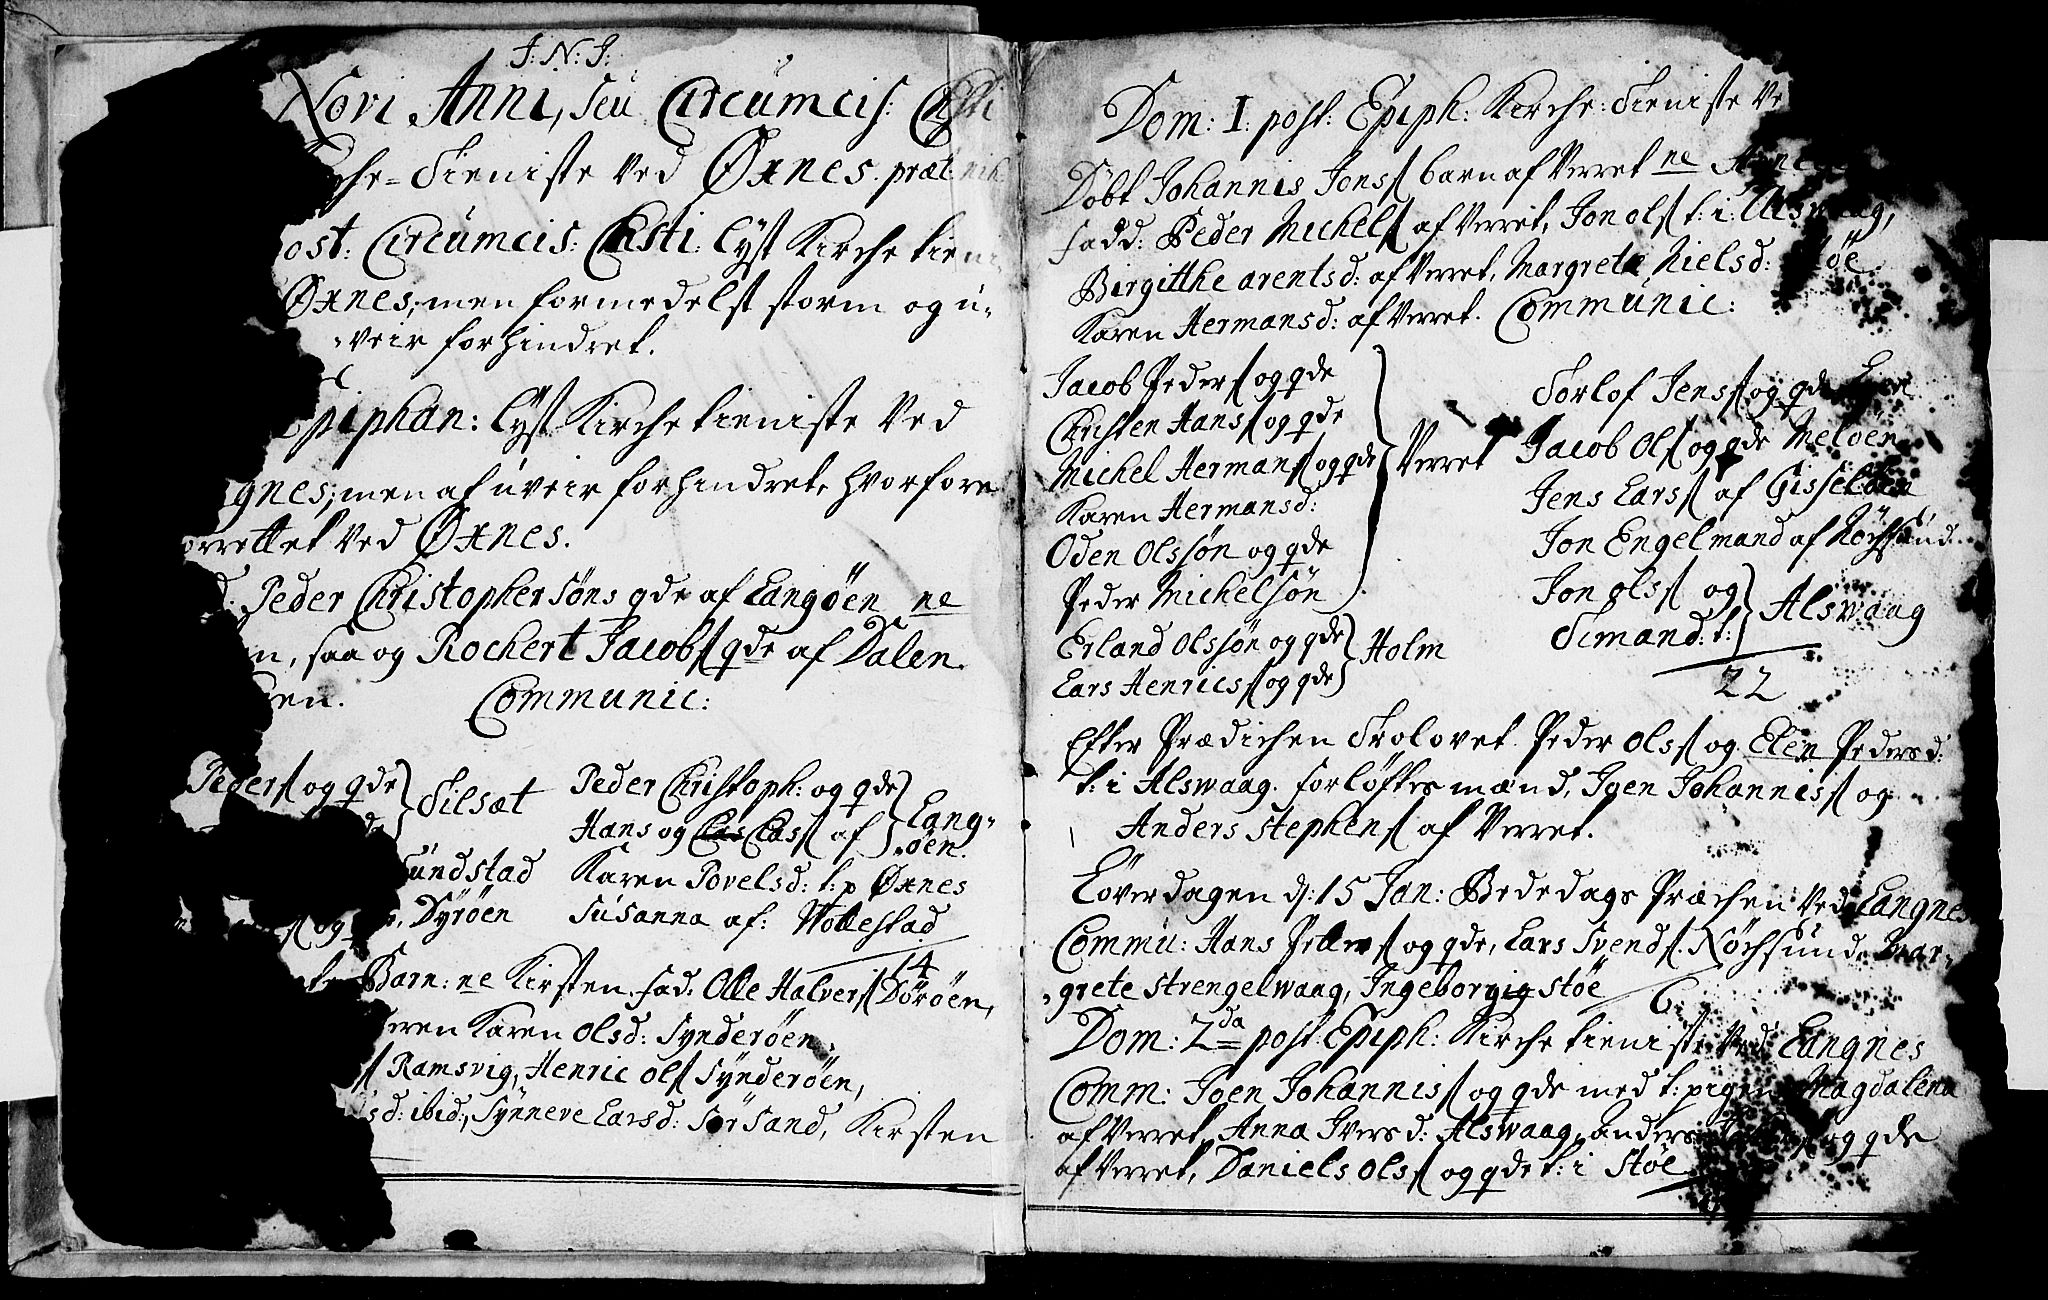 J: N: J:
Novi Anni, seu Circumcis: Chsti
che-Tieniste ved Øxnes. præt: nih
ost: Circumcis: Chsti: lyst Kirche tieni
Øxnes; men formedelst storm og u-
veir forhindret.
Epiphan: lyst Kirche tieniste ved
gnes; men af uveir forhindret, hvorfore
orrettet ved Øxnes.
d: Peder Christophersøns qde af Langøen ne
en, saa og Rochert Jacobs/ qde af Dalen.
en. Communic:
Peders/ og qde } Tilsæt
de
Sundstad
s/ og Dÿröen
Peder Christoph: og qde
Hans og Clas s/ af } Lang-
öen.
Karen Povelsd: t: p Øxnes
Susanna af: Hollestad
14
Barn: ne Kirsten. fad: Olle Halvers/ Dörøen,
eren Karen Olsd: Synderöen,
s/ Ramsvig, Henric Ols/ Sÿnderöen,
sd: ibid:, Sÿnneve Larsd: Sörsand, Kirsten
Dom: I: post: Epiph: Kirche: Tieniste ve
Döbt Johannis Jons/ barn af Verret ne
fadd: Peder Michels/ af Verret, Jon ols/ t: i Alswaag,
Birgitthe arentsd: af Verret, Margrete Nielsd: töe
Karen Hermansd: af Verret. Communic:
Jacob Peders/ og qde
Christen Hans/ og qde
Michel Hermans/ og qde
Karen Hermansd:
Oden Olssøn og qde
Peder Michelsøn
} Verret
Erland Olssøn og qde
Lars Henrics/ og qde
} Holm
Torlof Jens/ og qde
Jacob Ols/ og qde Melöen
Jens Lars/ af Gisselöen
Jon Engelmand af Nöchsund
Jon ols/ og
Simand: t:
} Alswaag
22
Efter Prædichen Trolovet Peder Ols/ og Elen Pedersd:
t: i Alswaag. forløftes mænd, Joen Johannis/ og
Anders Stephens/ af Verret.
Löverdagen d: 15 Jan: Bededags Præchen ved Langnes
Commu: Hans Pellers/ og qde, Lars Svends/ Nöchsund. Mar-
grete Strengelwaag, Ingeborg Støe 6.
Dom: 2da post: Epiph: Kirche tieniste ved Langnes
Comm: Joen Johannis/ og qde med t: pigen Magdalena
af Verret, Anna Ivers d: Alswaag, anders og qde
af Verret, Daniels Ols/ og qde t: i Støe